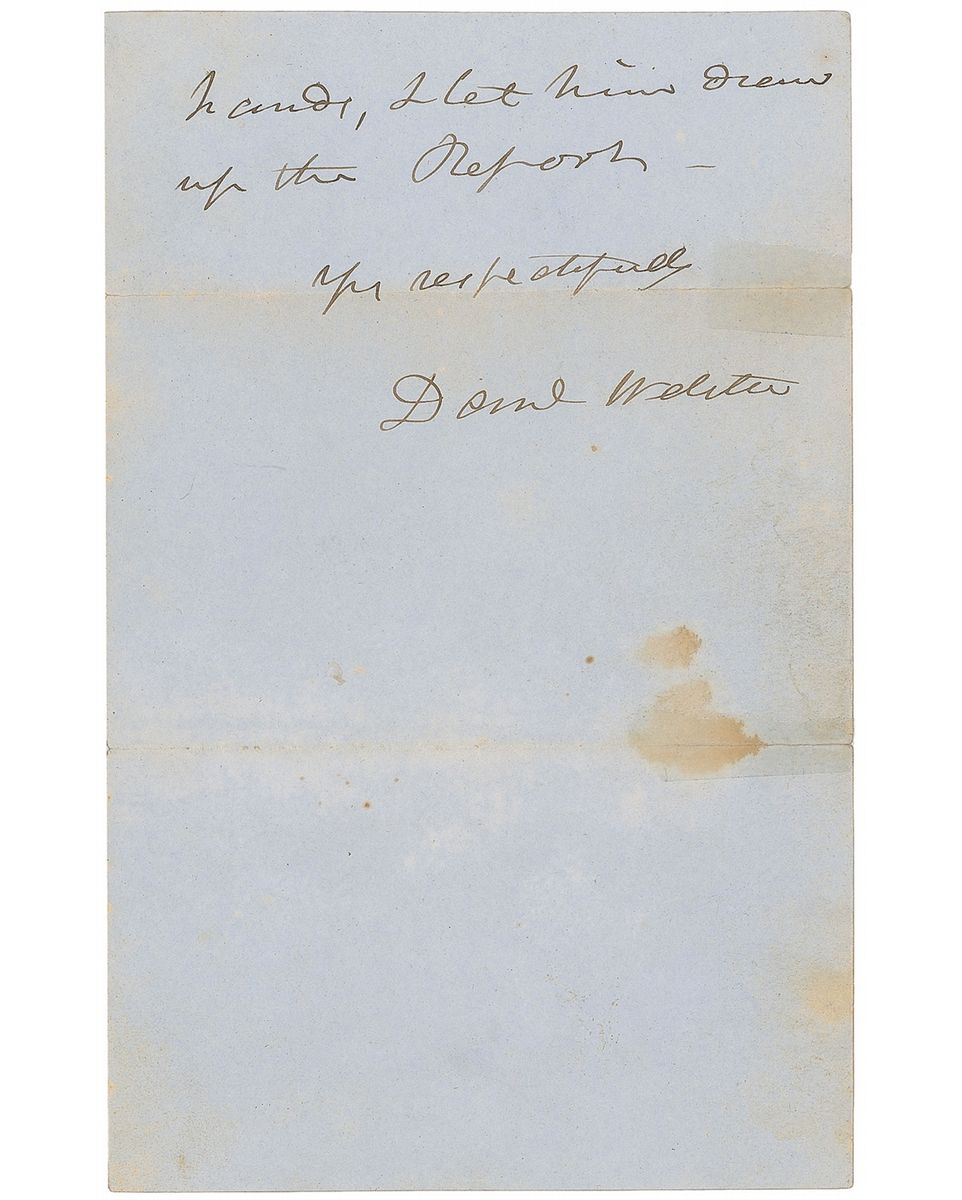 hands, & let him draw
up the Report —
Yrs respectfully
Danl Webster